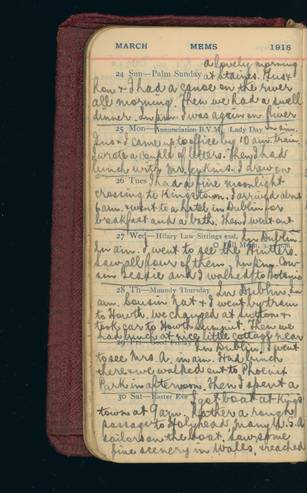 MARCH MEMS 1918
a lovely morning
24 Sun—Palm Sunday at Staines. Gus &
Ken & I had a canoe on the river
all morning. Then we had a swell
dinner. In p.m. I was again on river
25 Mon—Annunciation B.V.M. Lady Day In a.m.
Gus & I came up to office by 10 a.m. train
I wrote a couple of letters. Then I had
lunch with Mr.
26 Tues I had a fine moonlight
crossing to Kingstown. I arrived about
6am. went to a hotel in Dublin for
breakfast and a bath. Then I went out
27 Wed—Hilary Law Sittings end. In Dublin
In am. I went to see the
Saw all four of them. In p.m. Cou-
sin Bessie and I walked to Botanic
28 Th—Maundy Thursday In Dublin In
am. Cousin Nat & I went by train
to Howth. We changed at Sutton &
took car to Howth summit. Then we
had lunch at nice little cottage near
29 In Dublin. I went
to see Mrs. A. in am. Had lunch
there & we walked out to Phoenix
Park in afternoon. Then I spent a
30 Sat—Easter Eve I got boat at Kings
town at 9am. Rather a rough
passage to Holyhead. many U.S.A
sailors on the boat. Saw some
fine scenery in Wales, reached